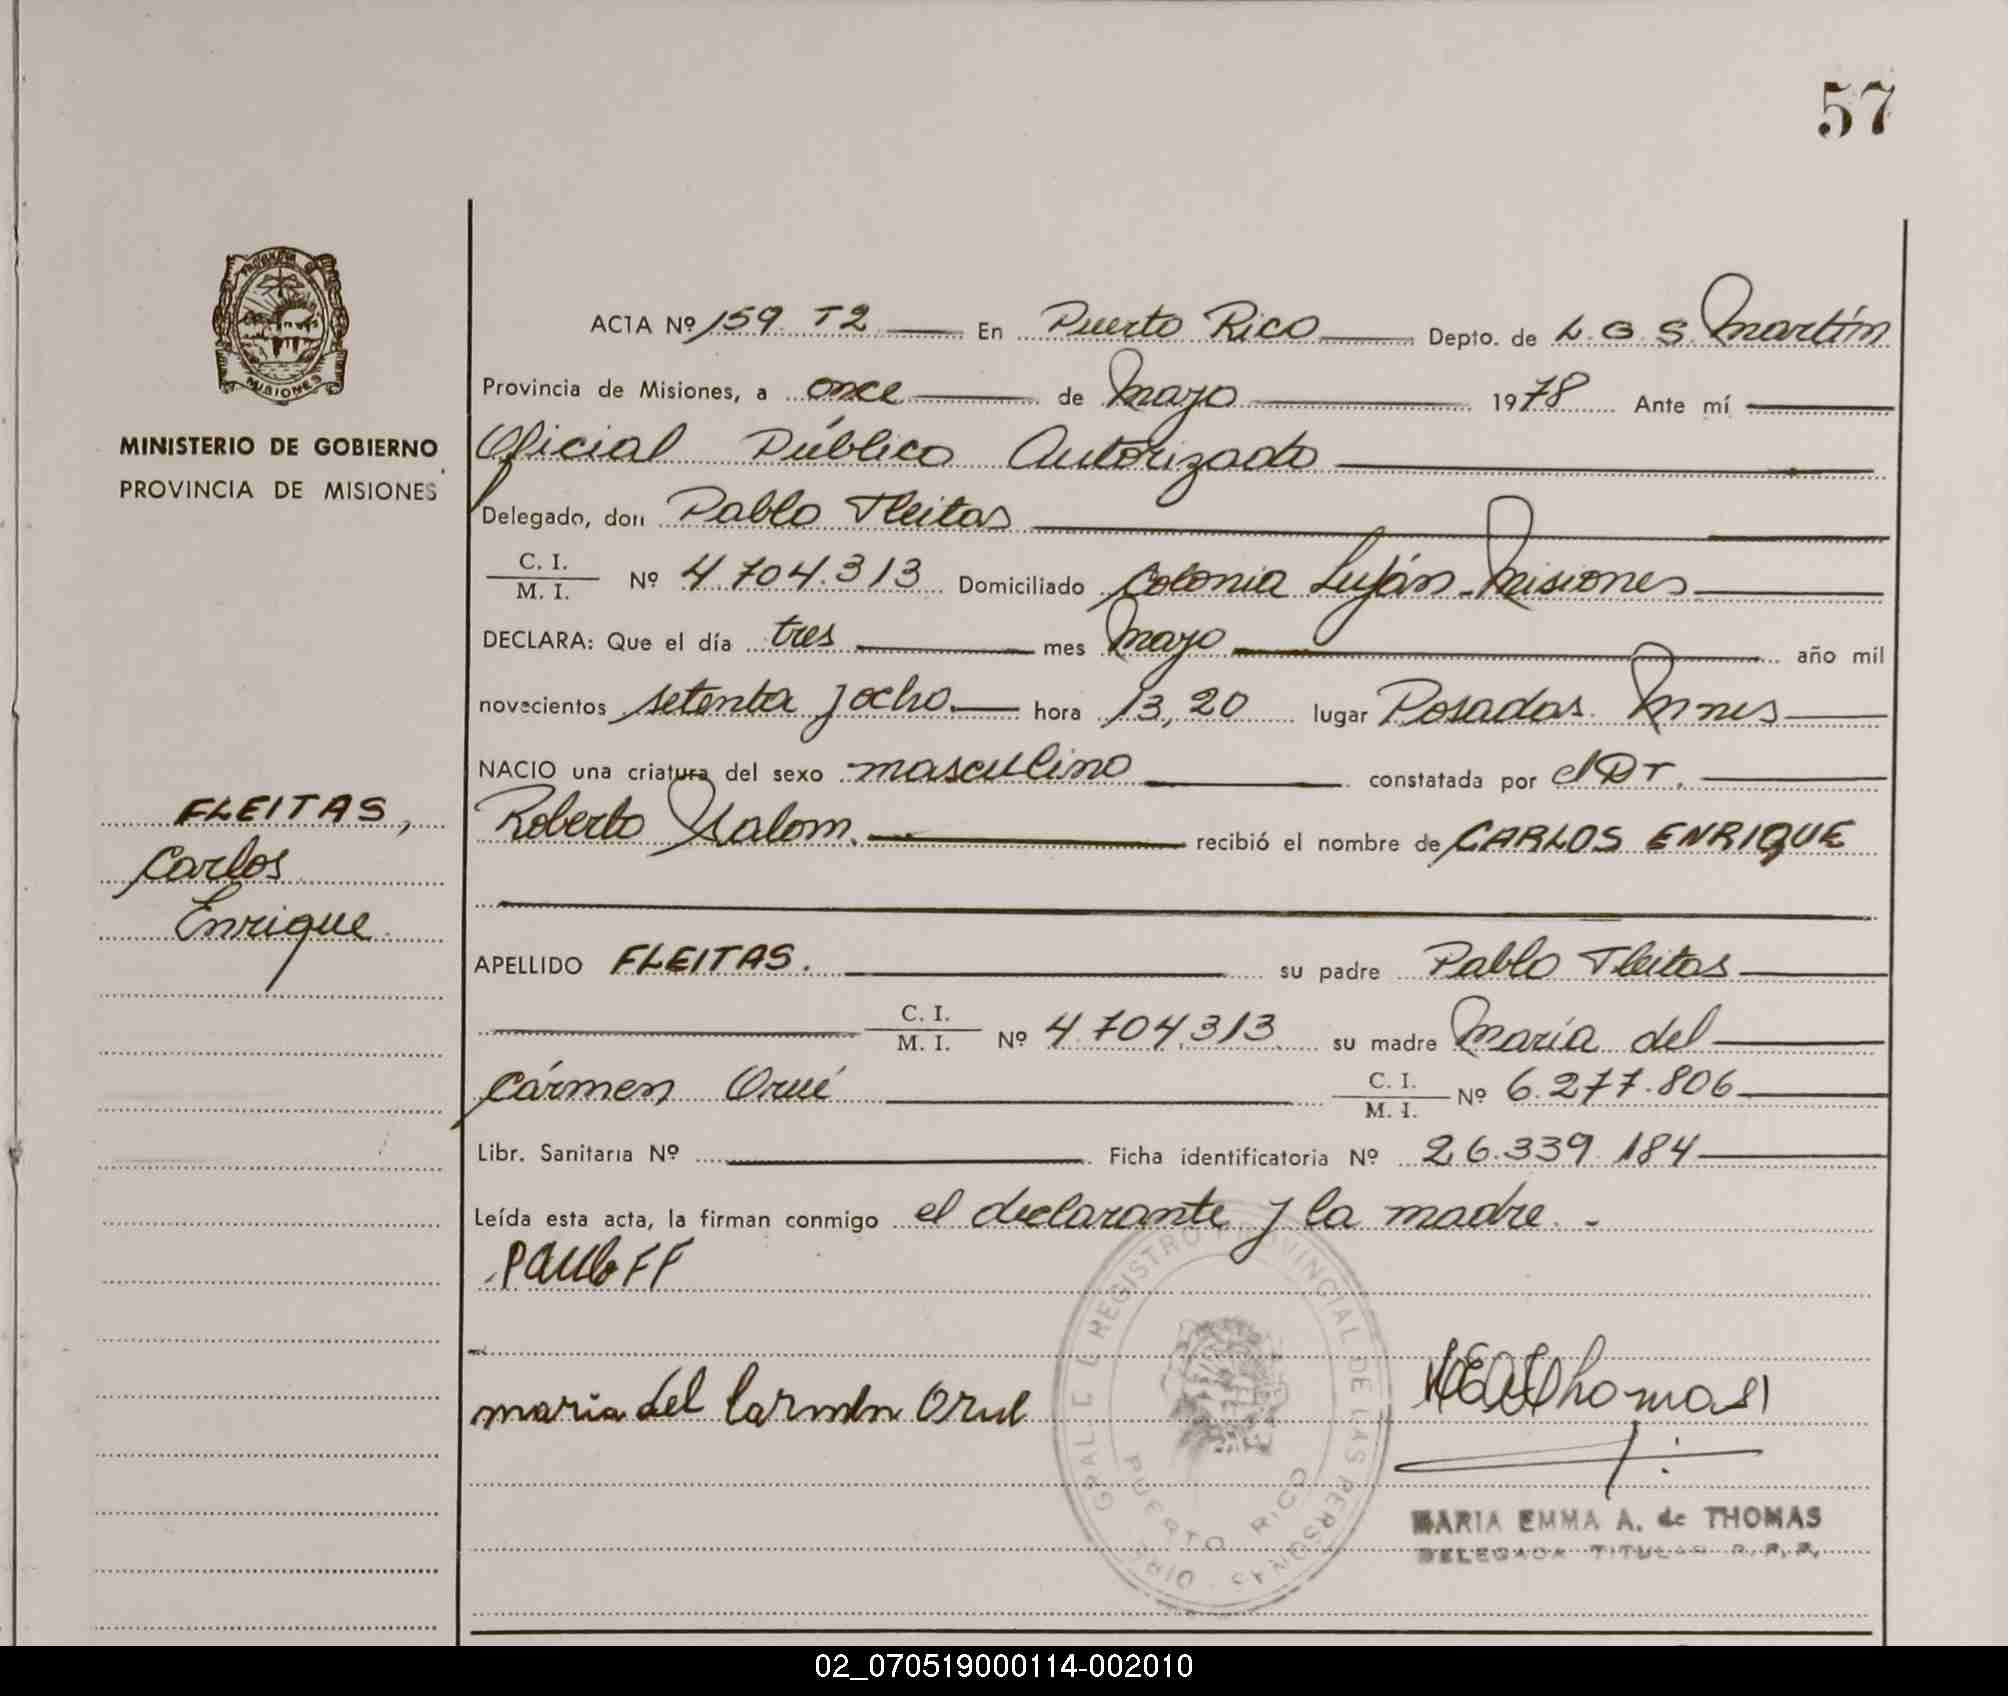 57
ACTA Nº 159 T2 En Puerto Rico Depto. de L. G. S. Martín
Provincia de Misiones, a once de Mayo 1978 Ante mí
MINISTERIO DE GOBIERNO
PROVINCIA DE MISIONES
MISIONES
Oficial Público Autorizado
Delegado, don Pablo Fleitas
C. I.
M. I. Nº 4.704.313 Domiciliado Colonia Luján - Misiones
DECLARA: Que el día tres mes Mayo año mil
novecientos setenta y ocho. hora 13,20 lugar Posadas Mnes
NACIO una criatura del sexo masculino constatada por el Dr.
FLEITAS,
Carlos
Enrique
Roberto Salom. recibió el nombre de CARLOS ENRIQUE
APELLIDO FLEITAS. su padre Pablo Fleitas
C. I.
M. I. Nº 4.704.313 su madre María del
Cármen Orué C. I.
M. I. Nº 6.277.806
Libr. Sanitaria Nº Ficha identificatoria Nº 26.339.184
Leída esta acta, la firman conmigo el declarante y la madre. -
Pablo FF
maria del Carmen Orue
Thomas
DIREC. GRAL. DE REGISTRO PROVINCIAL DE LAS PERSONAS
PUERTO RICO
MARIA EMMA A. de THOMAS
DELEGADA TITULAR R. P. P.
02_070519000114-002010